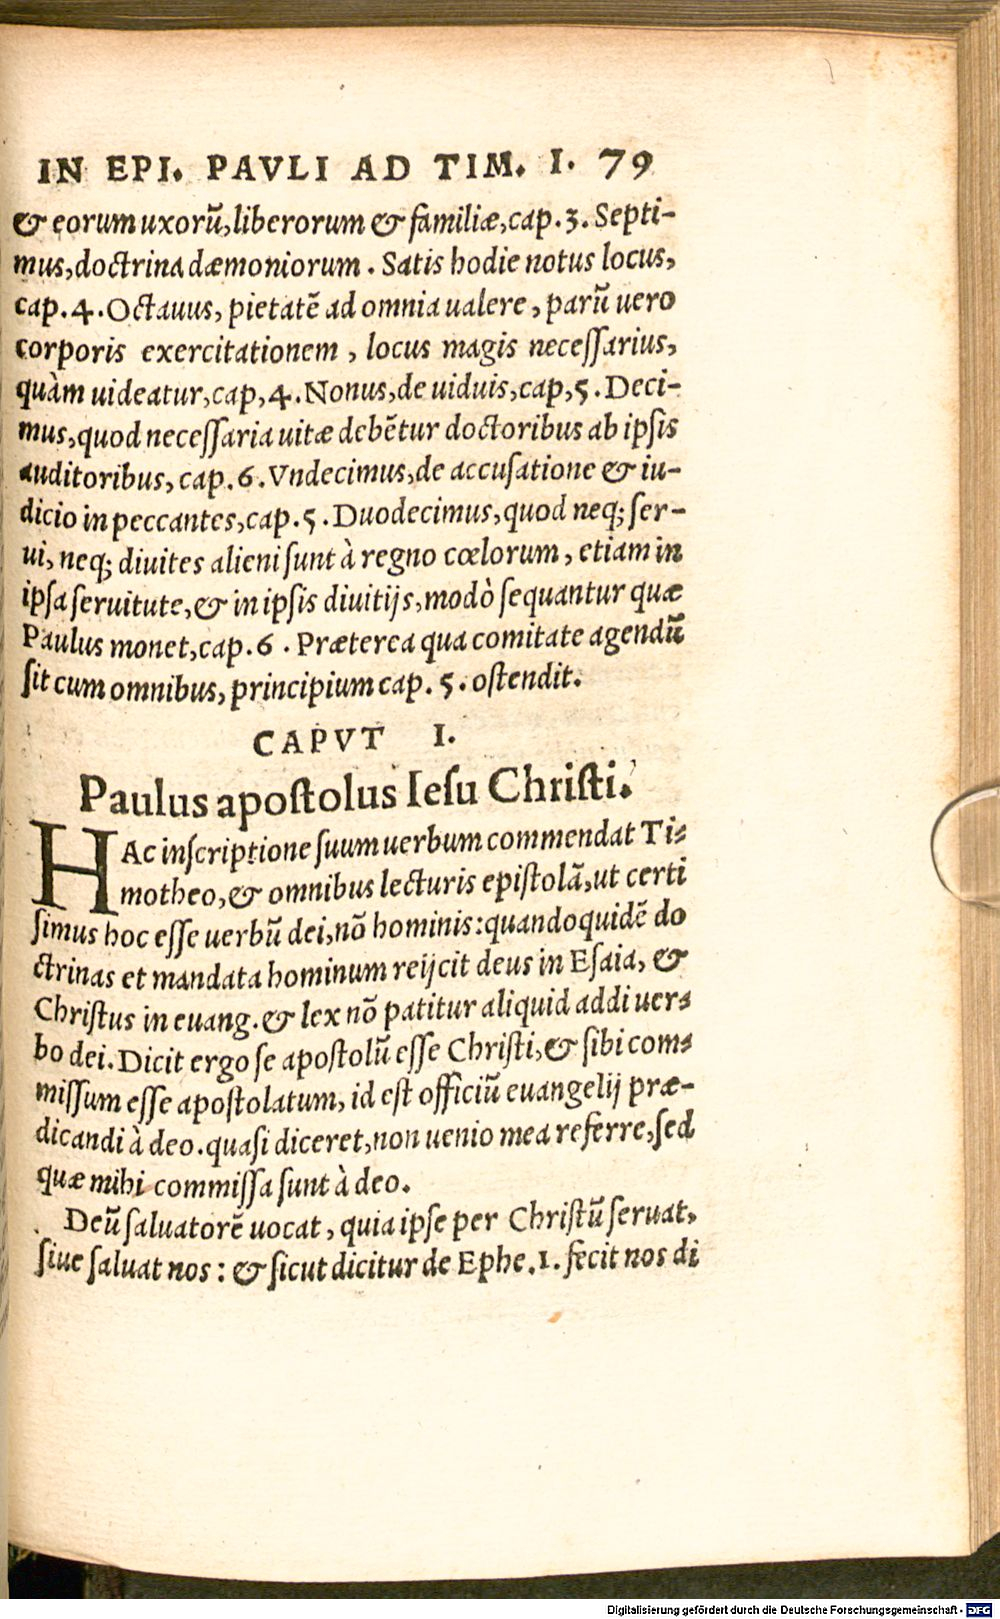 IN EPI. PAVLI AD TIM. I. 79
& eorum uxorũ, liberorum & familiæ, cap. 3. Septi-
mus, doctrina dæmoniorum. Satis hodie notus locus,
cap. 4. Octauus, pietatẽ ad omnia ualere, parũ uero
corporis exercitationem, locus magis necessarius,
quàm uideatur, cap, 4. Nonus, de uiduis, cap, 5. Deci-
mus, quod necessaria uitæ debẽtur doctoribus ab ipsis
auditoribus, cap. 6. Vndecimus, de accusatione & iu-
dicio in peccantes, cap. 5. Duodecimus, quod neq; ser-
ui, neq; diuites alieni sunt à regno cœlorum, etiam in
ipsa seruitute, & in ipsis diuitijs, modò sequantur quæ
Paulus monet, cap. 6. Præterea qua comitate agendũ
sit cum omnibus, principium cap. 5. ostendit.
CAPVT I.
Paulus apostolus Iesu Christi.
HAc inscriptione suum uerbum commendat Ti-
motheo, & omnibus lecturis epistolã, ut certi
simus hoc esse uerbũ dei, nõ hominis: quandoquidẽ do
ctrinas et mandata hominum reijcit deus in Esaia, &
Christus in euang. & lex nõ patitur aliquid addi uer-
bo dei. Dicit ergo se apostolũ esse Christi, & sibi com-
missum esse apostolatum, id est officiũ euangelij præ-
dicandi à deo. quasi diceret, non uenio mea referre, sed
quæ mihi commissa sunt à deo.
Deũ saluatorẽ uocat, quia ipse per Christũ seruat,
siue saluat nos: & sicut dicitur de Ephe. 1. fecit nos di
Digitalisierung gefördert durch die Deutsche Forschungsgemeinschaft - DFG